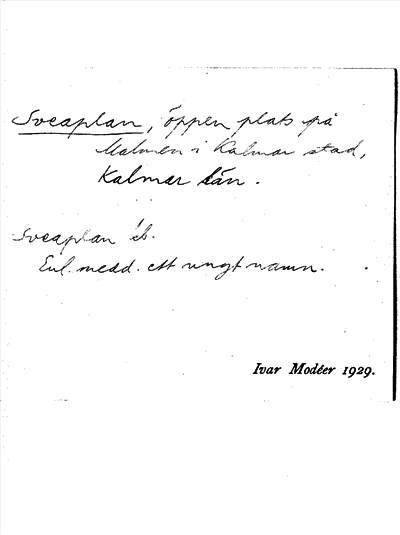 Sveaplan, öppen plats på
Malmen i Kalmar stad,
Kalmar län.
Sveaplan ib.
Enl. medd. ett ungt namn.
Ivar Modéer 1929.